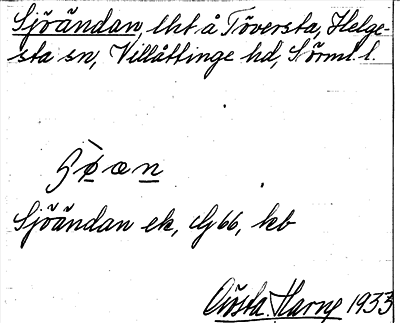 Sjöändan, lht å Töversta, Helge-
sta sn, Villåttinge hd, Sörml. l.
Sjöändan ek, G 66, kb
Gösta Harne 1933